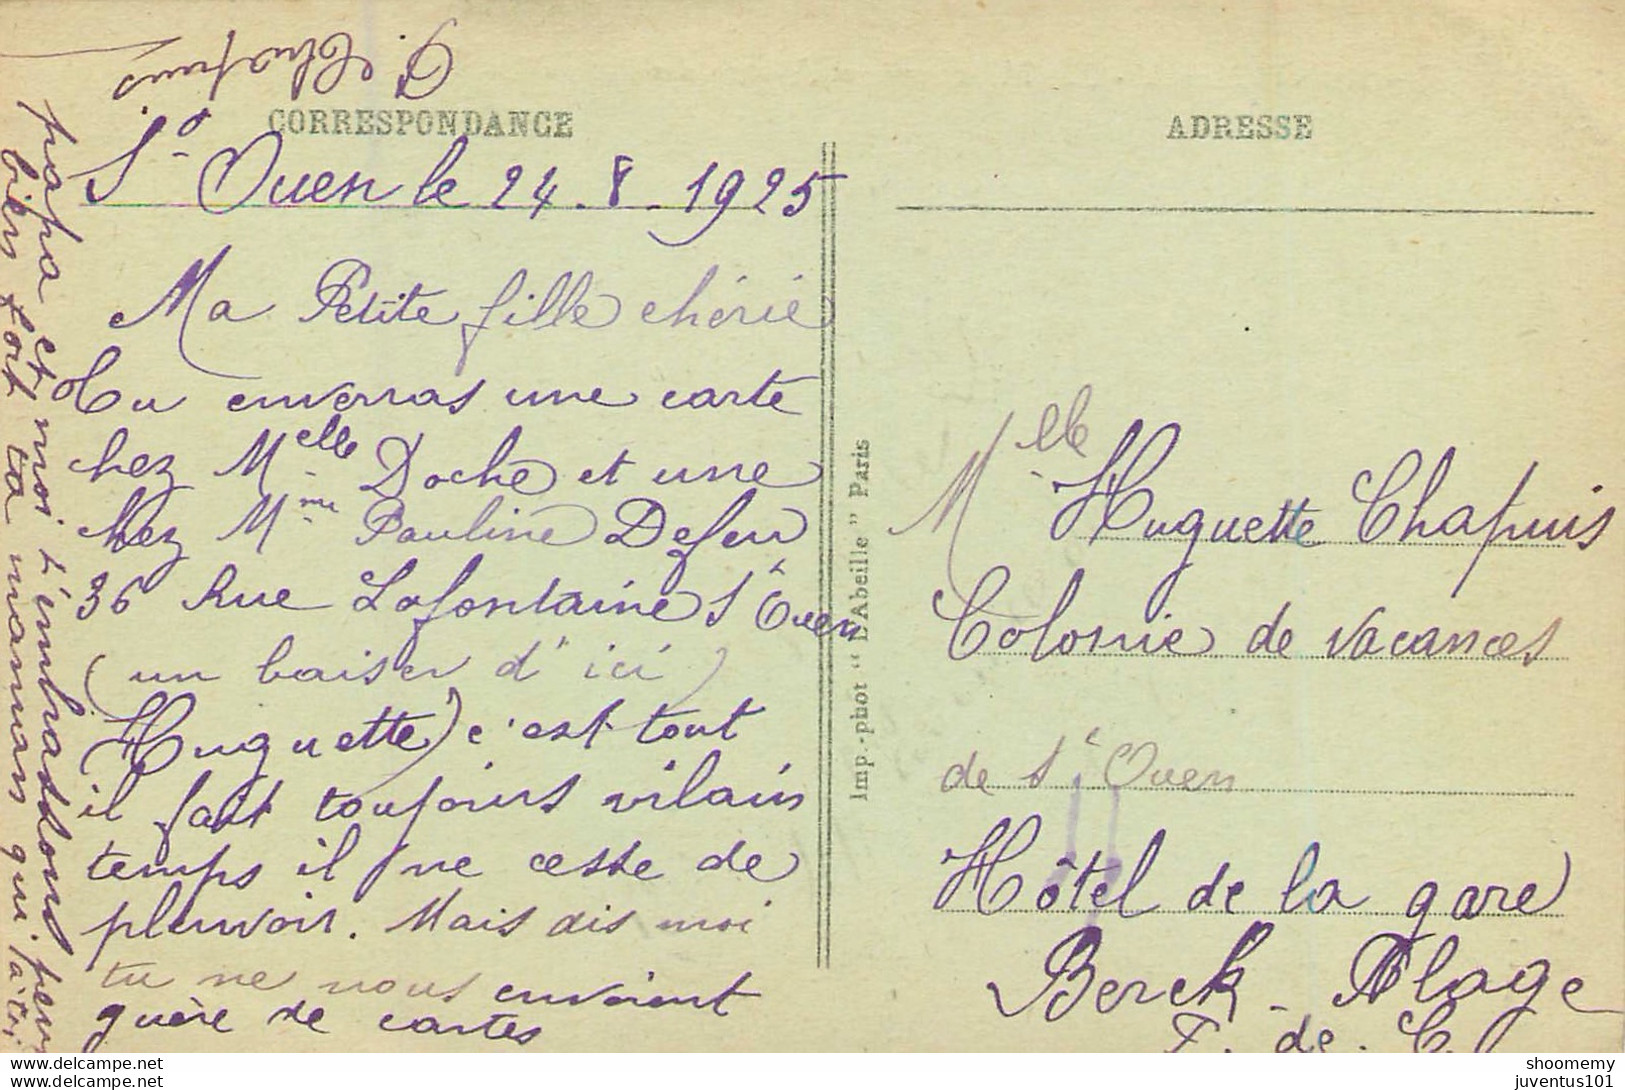 CORRESPONDANCE
St Ouen le 24.8.1925
Ma Petite fille chérie
Tu enverras une carte
chez Melle Doche et une
chez Mme Pauline Defeu
36 Rue Lafontaine St Ouen
(un baiser d'ici
Huguette) c'est tout
il fait toujours vilain
temps il ne cesse de
pleuvoir. Mais dis moi
tu ne nous envoient
guère de cartes
papa et moi t'embrassons
bien fort ta maman qui
P. Chapuis
Imp.-phot "L'Abeille" Paris
ADRESSE
Melle Huguette Chapuis
Colonie de vacances
de St Ouen
Hôtel de la gare
Berck-Plage
P. de. C.
shoomemy
juventus101